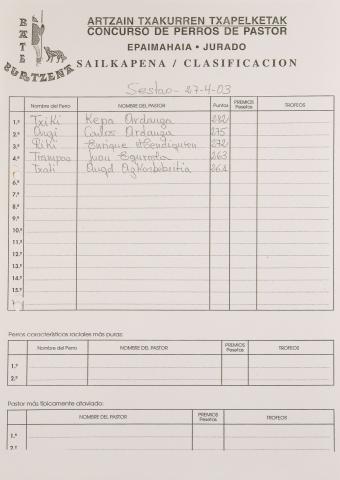 BATE
BURTZEÑA
ARTZAIN TXAKURREN TXAPELKETAK
CONCURSO DE PERROS DE PASTOR
EPAIMAHAIA • JURADO
SAILKAPENA / CLASIFICACION
Sestao - 27-4-03
Nombre del Perro NOMBRE DEL PASTOR Puntos PREMIOS Pesetas TROFEOS
1.º Txiki Kepa Ardanga
2.º Carlos Ardanga 275
3.º Enrique 272
4.º Trampas Juan 263
5.º Txati Angel
6.º
7.º
8.º
9.º
10.º
11.º
12.º
13.º
14.º
15.º
Perros características raciales más puras:
Nombre del Perro NOMBRE DEL PASTOR PREMIOS Pesetas TROFEOS
1.º
2.º
Pastor más típicamente ataviado:
NOMBRE DEL PASTOR PREMIOS Pesetas TROFEOS
1.º
2.º